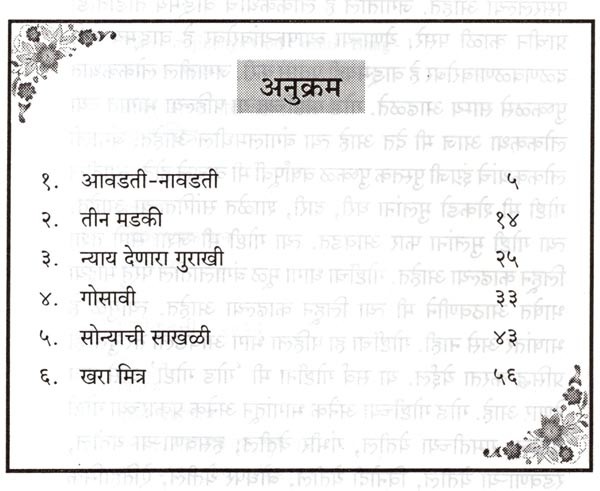 अनुक्रम
१. आवडती-नावडती ५
२. तीन मडकी १४
३. न्याय देणारा गुराखी २५
४. गोसावी ३३
५. सोन्याची साखळी ४३
६. खरा मित्र ५६